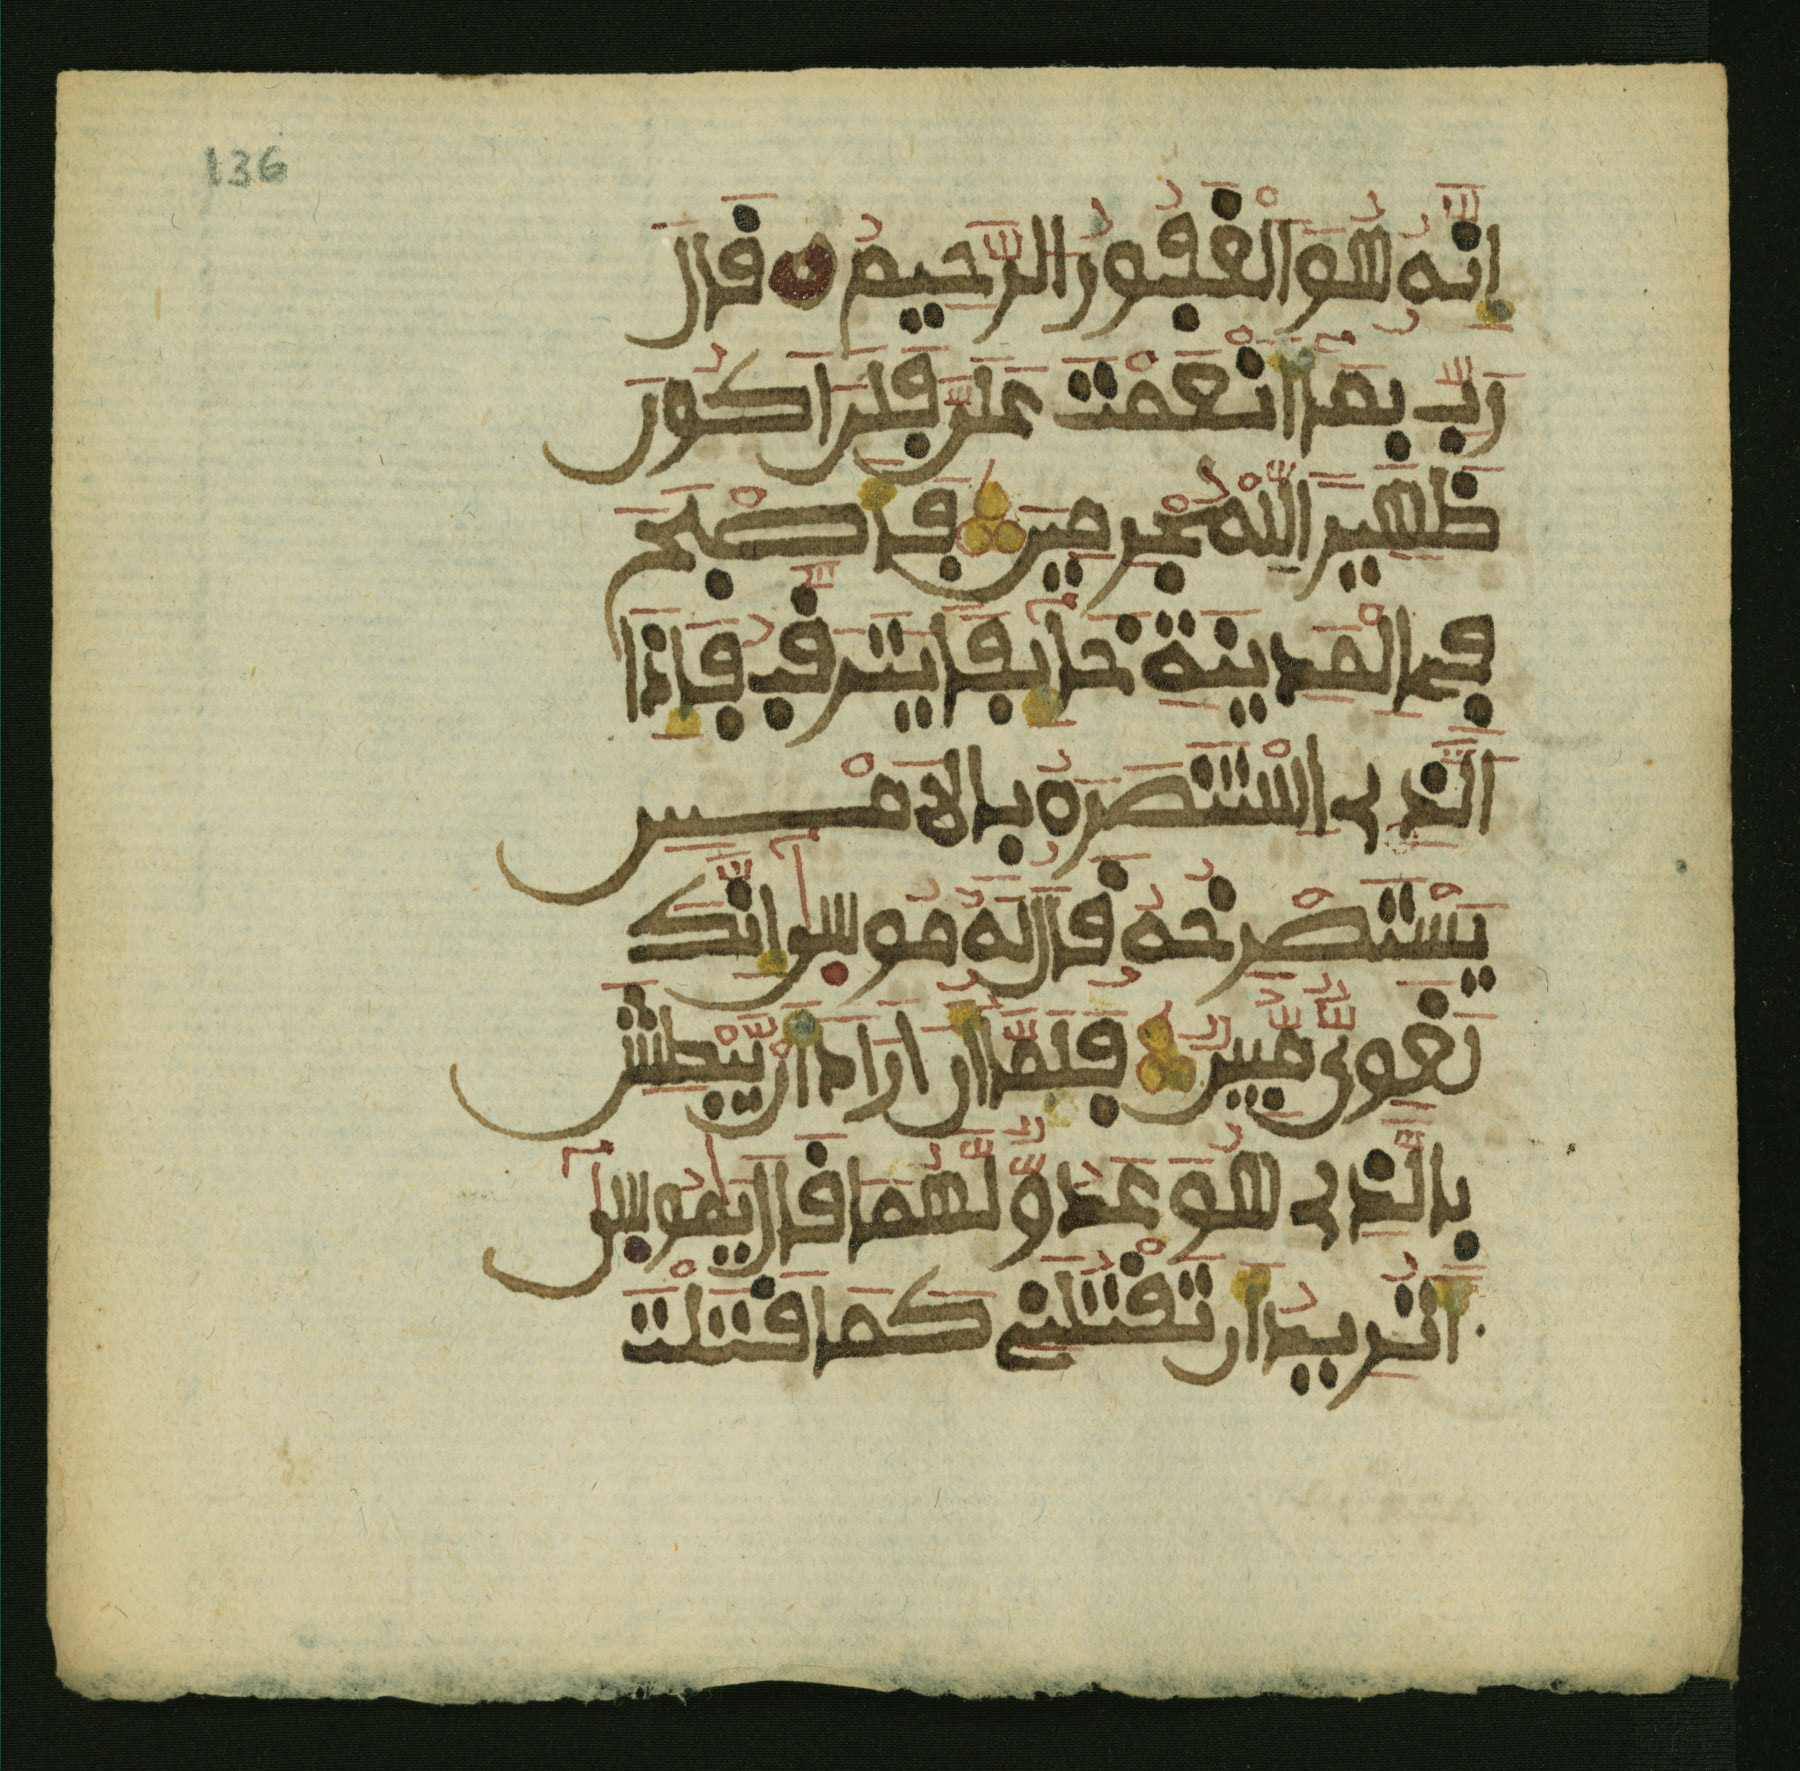 136
إِنَّهُ هُوَ الْغَفُورُ الرَّحِيمُ قَالَ
رَبِّ بِمَا أَنْعَمْتَ عَلَيَّ فَلَنَ اَكُونَ
ظَهِيرًا لِّلْمُجْرِمِينَ فَأَصْبَحَ
فِي الْمَدِينَةِ خَآئِفًا يَتَرَقَّبُ فَإِذَا
الَّذِي اسْتَنصَرَهُ بِالَامْسِ
يَسْتَصْرِخُهُ قَالَ لَهُ مُوسَىٰٓ إِنَّكَ
لَغَوِيٌّ مُّبِينٌ فَلَمَّا أَنَ اَرَادَ أَنْ يَّبْطِشَ
بِالَّذِي هُوَ عَدُوٌّ لَّهُمَا قَالَ يَٰمُوسَىٰٓ
أَتُرِيدُ أَن تَقْتُلَنِي كَمَا قَتَلْتَ